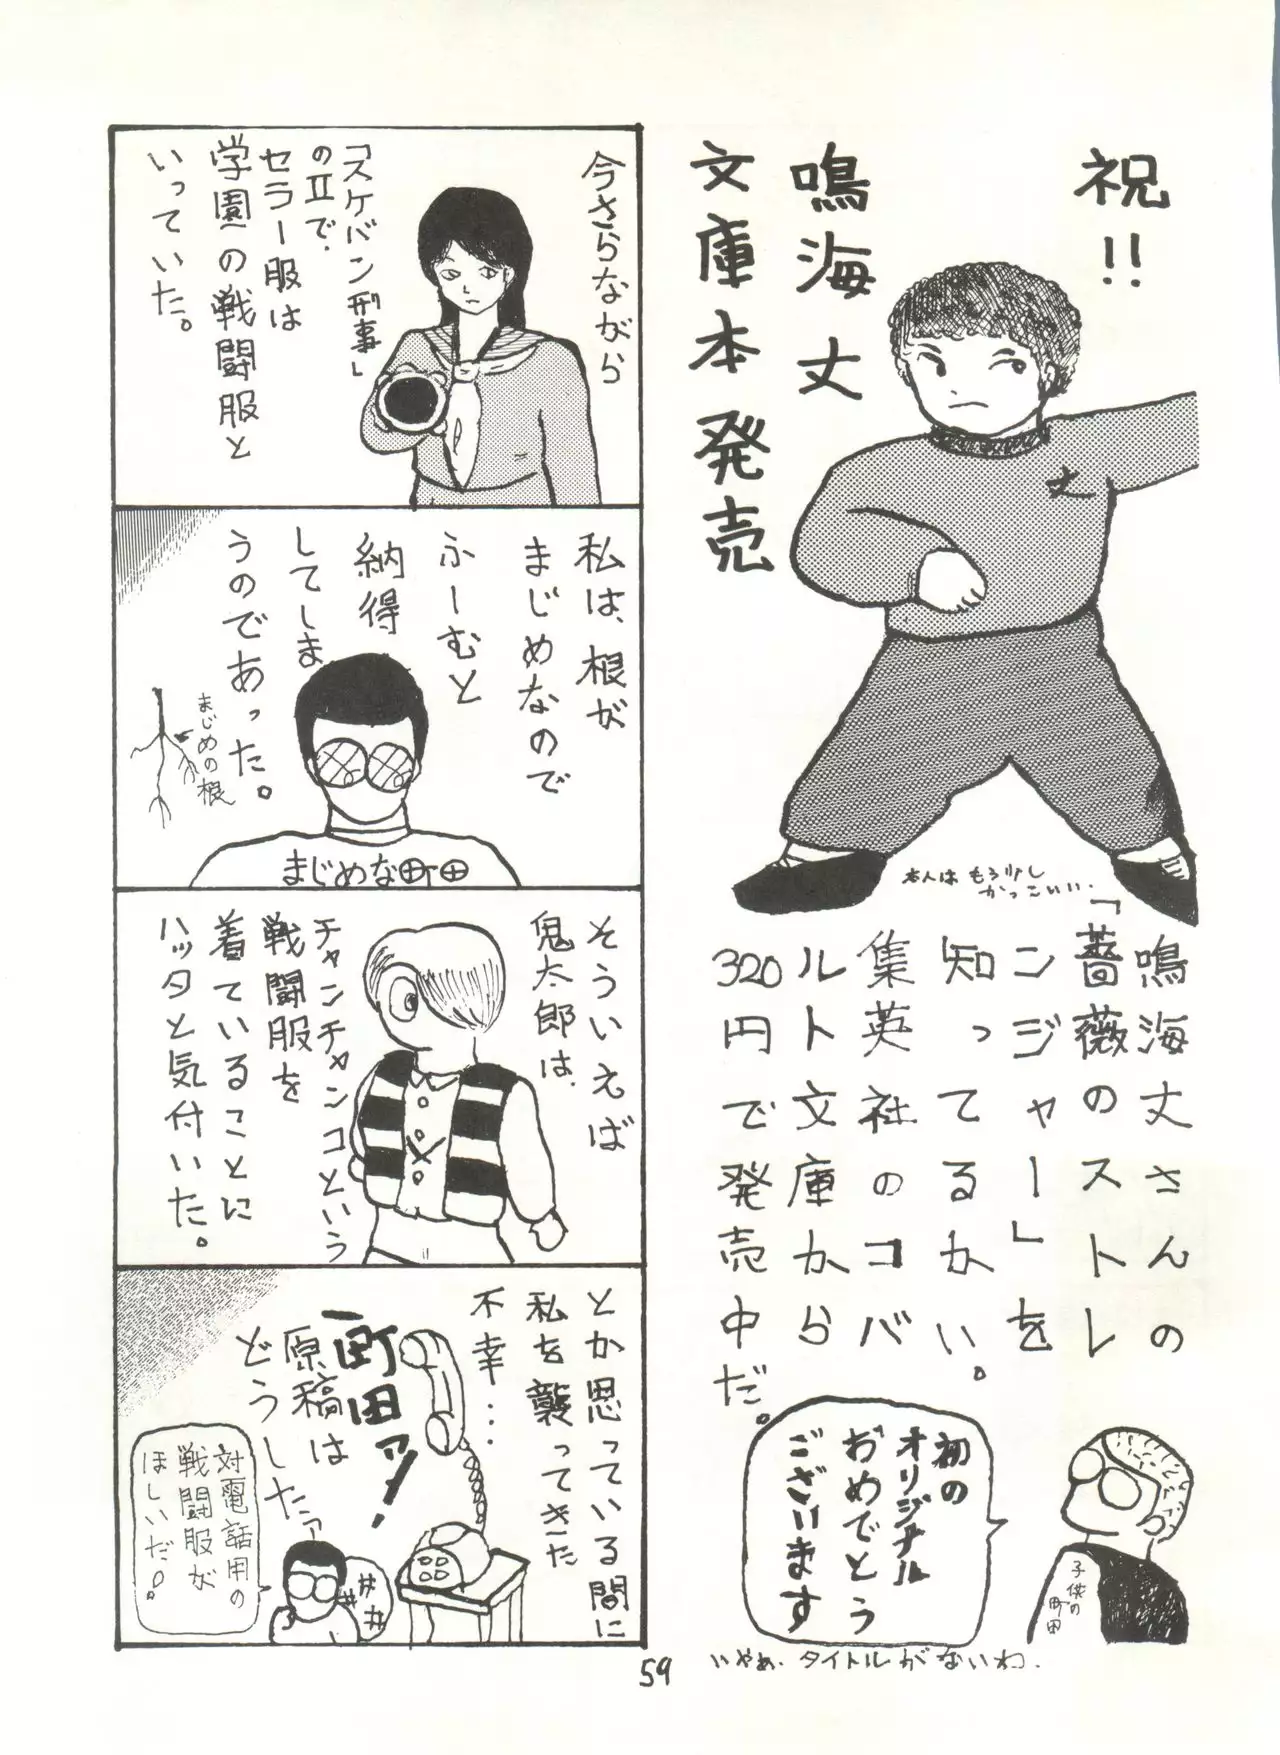 祝!!
鳴海丈
文庫本発売
丈
本人はもう少し
かっこいい.
鳴海丈さんの
「薔薇のストレ
ンジャー」を
知ってるかい。
集英社のコバ
ルト文庫から
320円で発売中だ。
初の
オリジナル
おめでとう
ございます
子供の
町田
いやぁ.タイトルがないわ.
今さらながら
「スケバン刑事」
のⅡで、
セラー服は
学園の戦闘服と
いっていた。
私は、根が
まじめなので
ふーむと
納得
してしま
うのであった。
まじめの根
まじめな町田
そういえば
鬼太郎は、
チャンチャンコという
戦闘服を
着ていることに
ハッタと気付いた。
とか思っている間に
私を襲ってきた
不幸…
町田ァ!
原稿は
どうしたァ
対電話用の
戦闘服が
ほしいだ!。
59